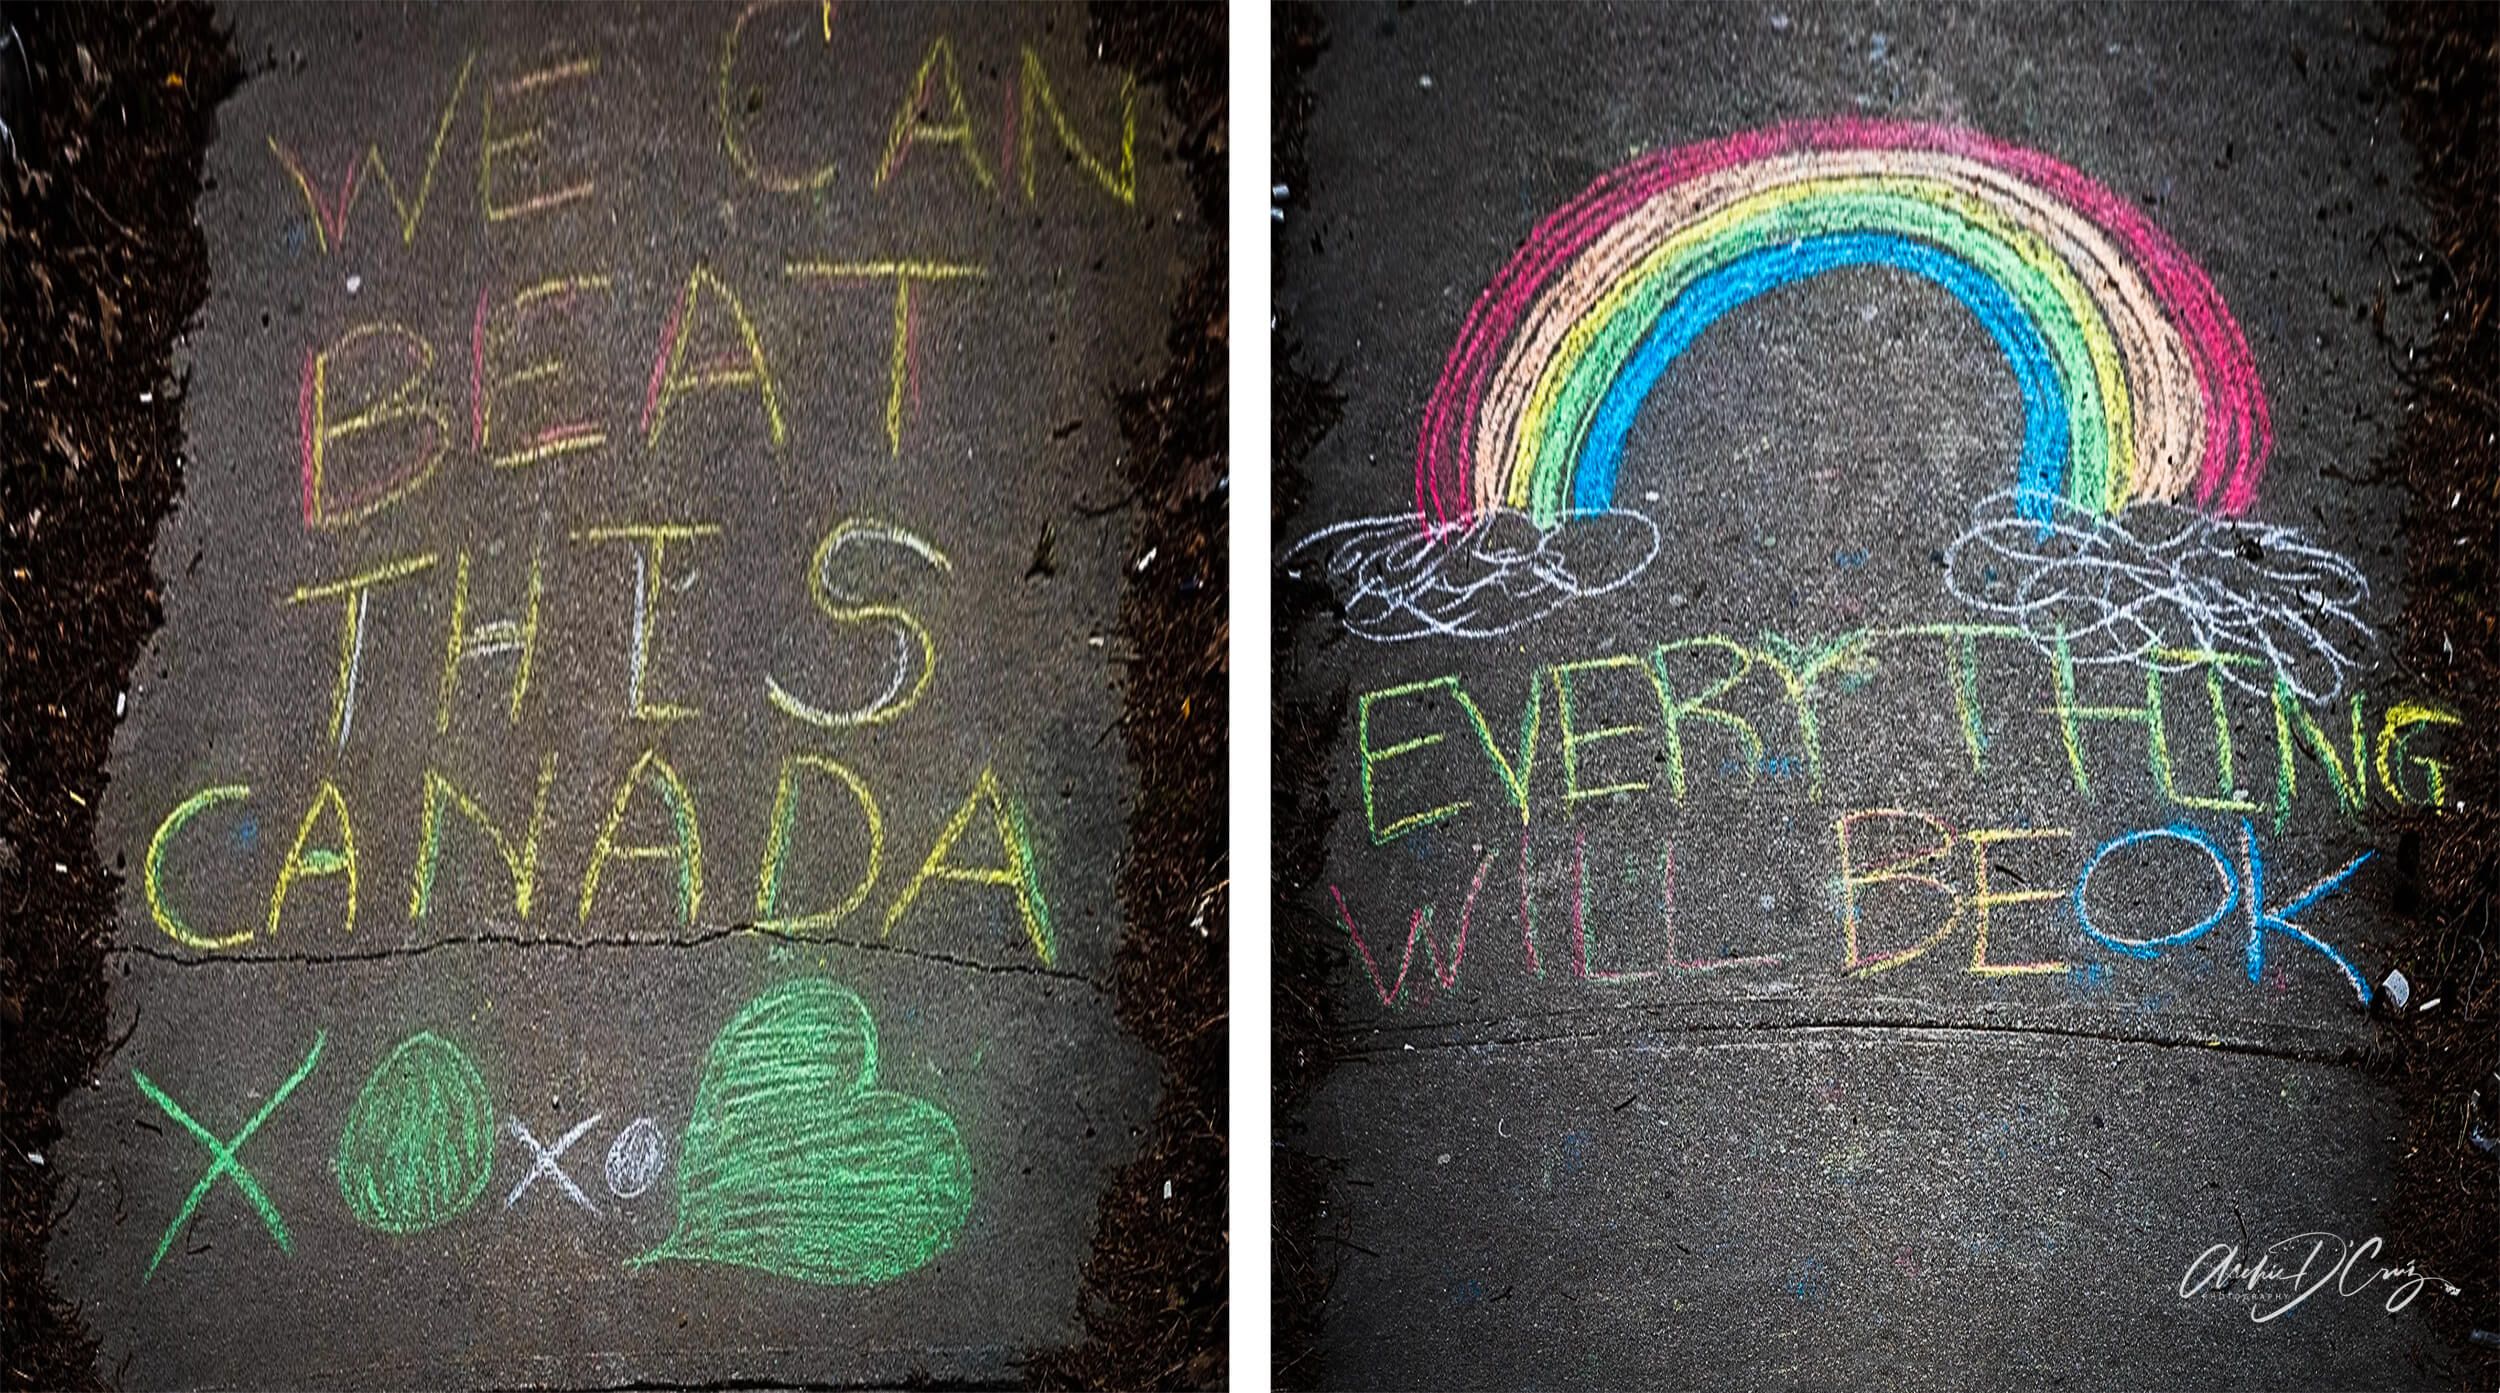 WE CAN
BEAT
THIS
CANADA
XOXO
EVERYTHING
WILL BE OK
Archie D'Cruz
PHOTOGRAPHY